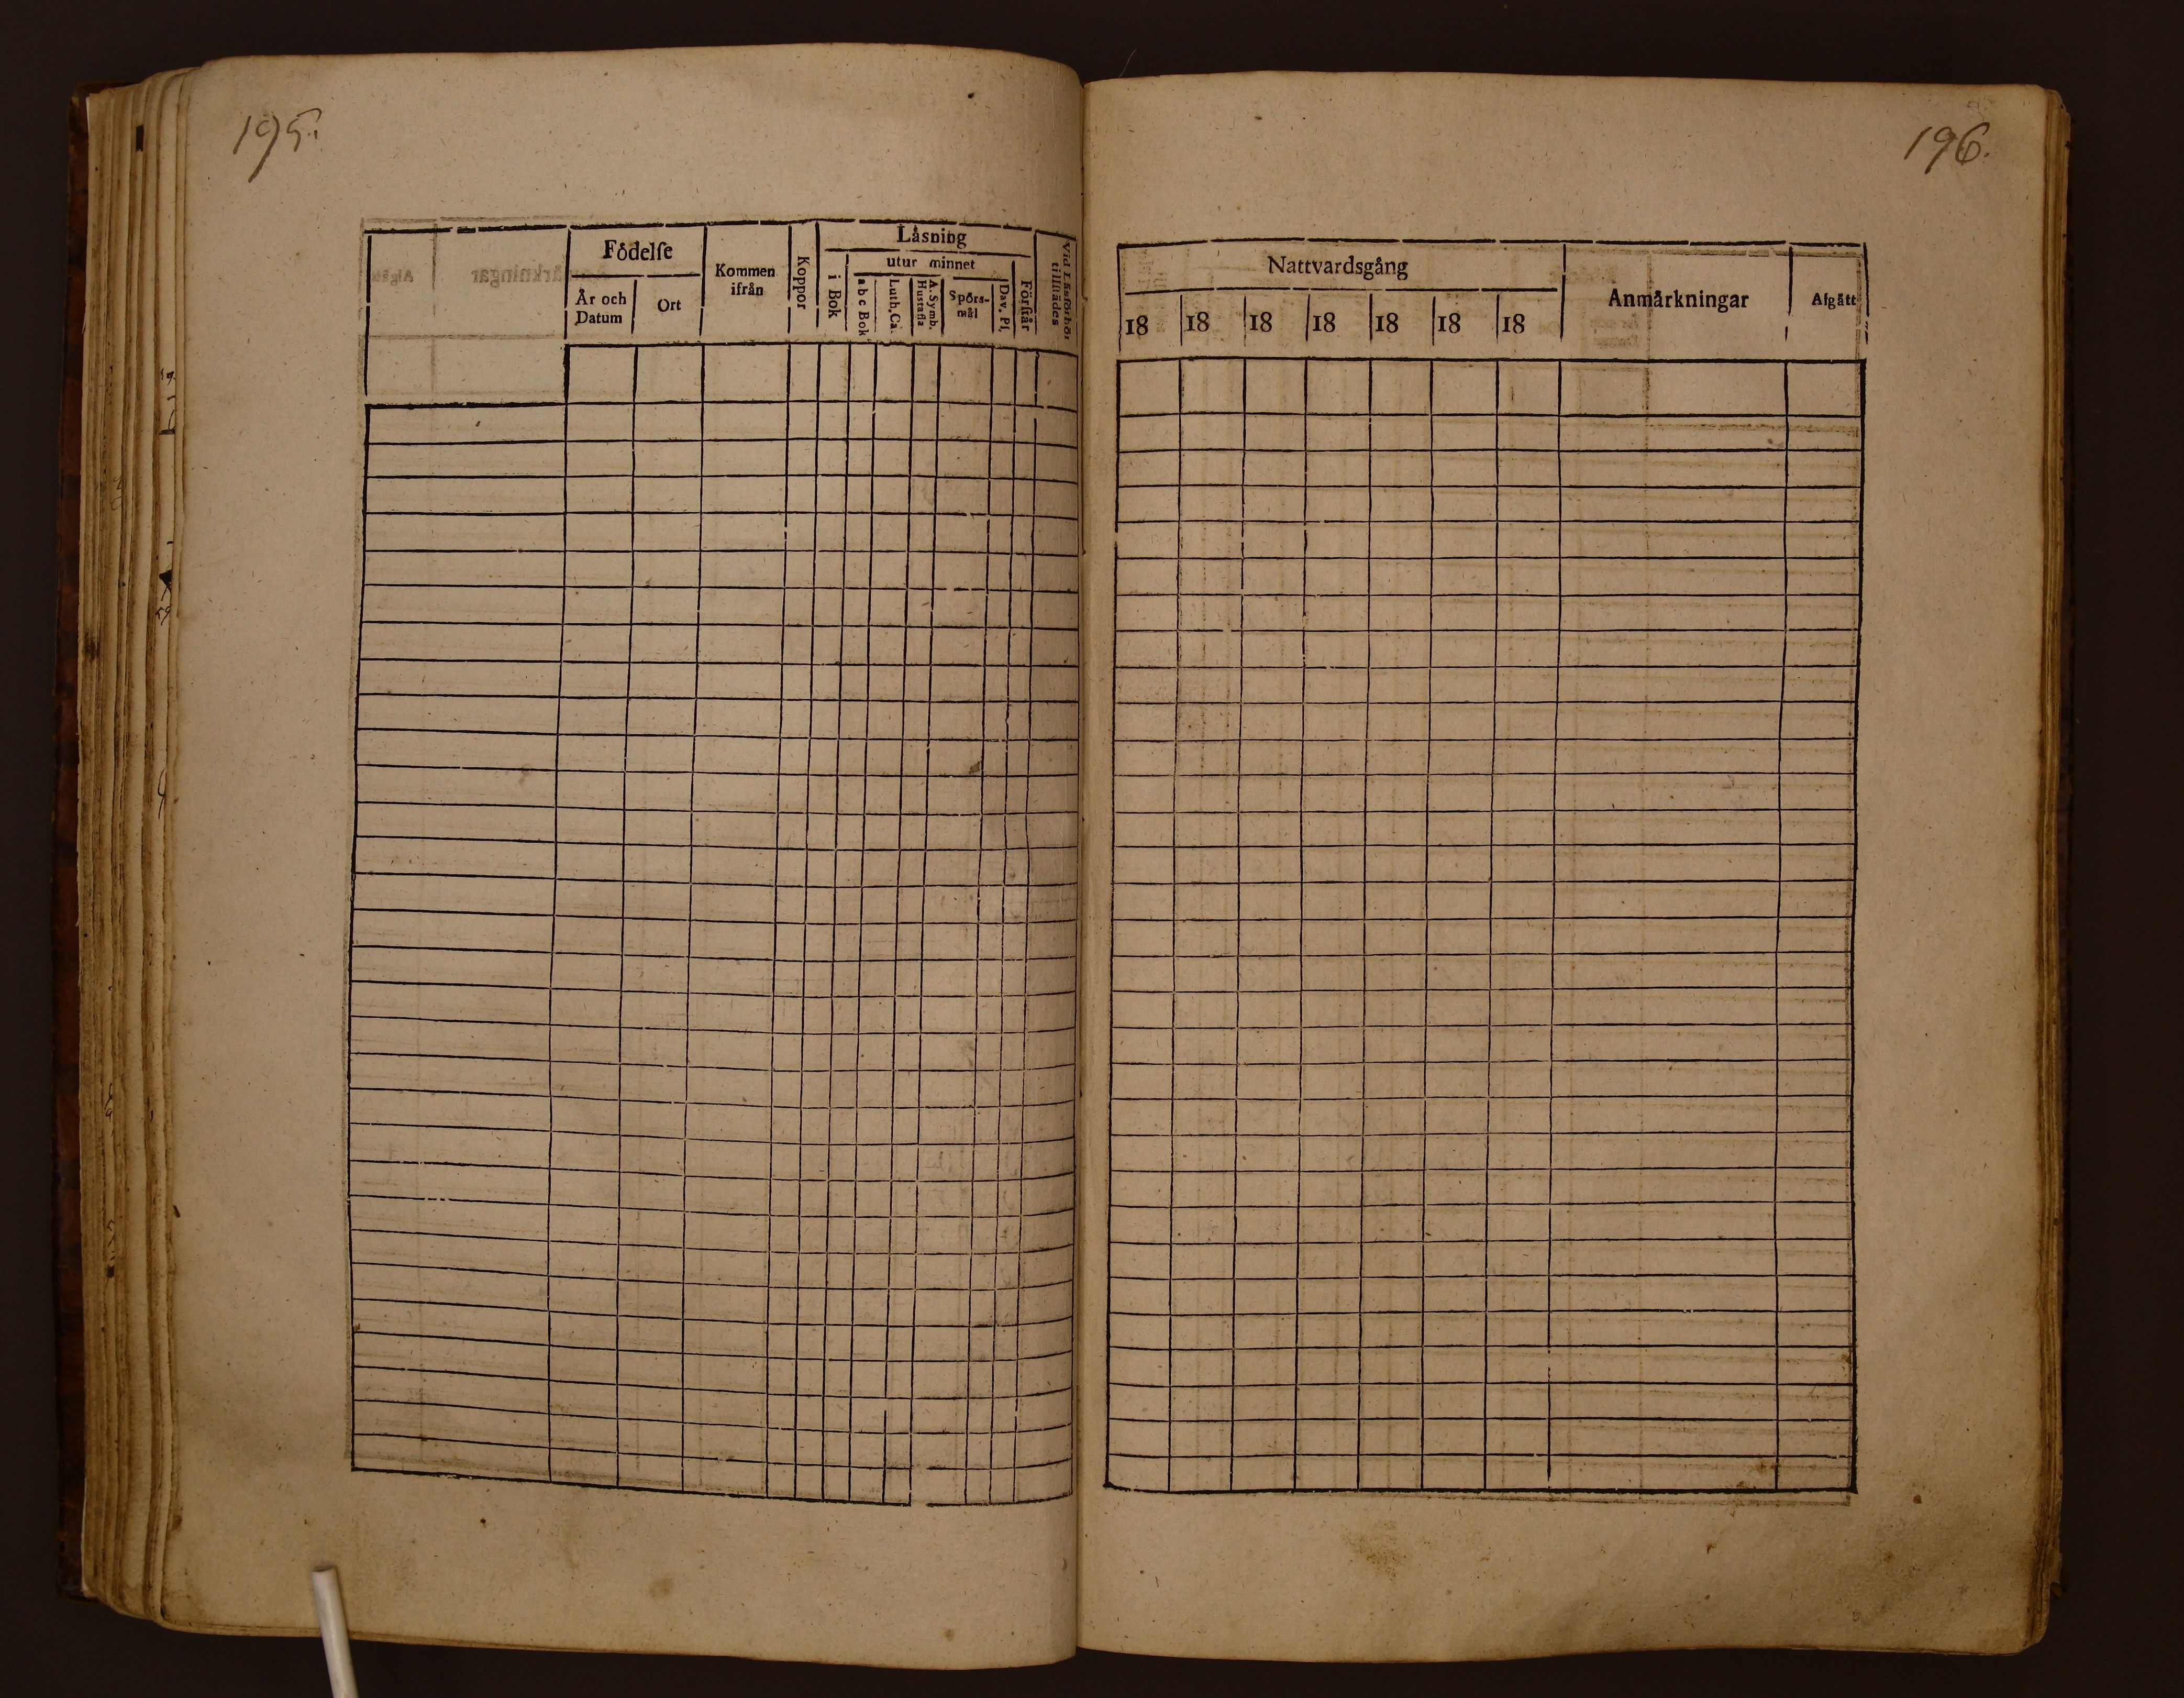 195.
Födelſe
År och
Datum
Ort
Kommen
ifrån
Koppor
Låsning
i Bok
utur minnet
a b c Bok
Luth. Ca.
A. Symb.
Hustafla
Spörs-
mål
Dav. Pſ.
Förſtår
Vid Läsförhör
tillſtädes
196.
Nattvardsgång
18 18 18 18 18 18 18
Anmårkningar
Afgått